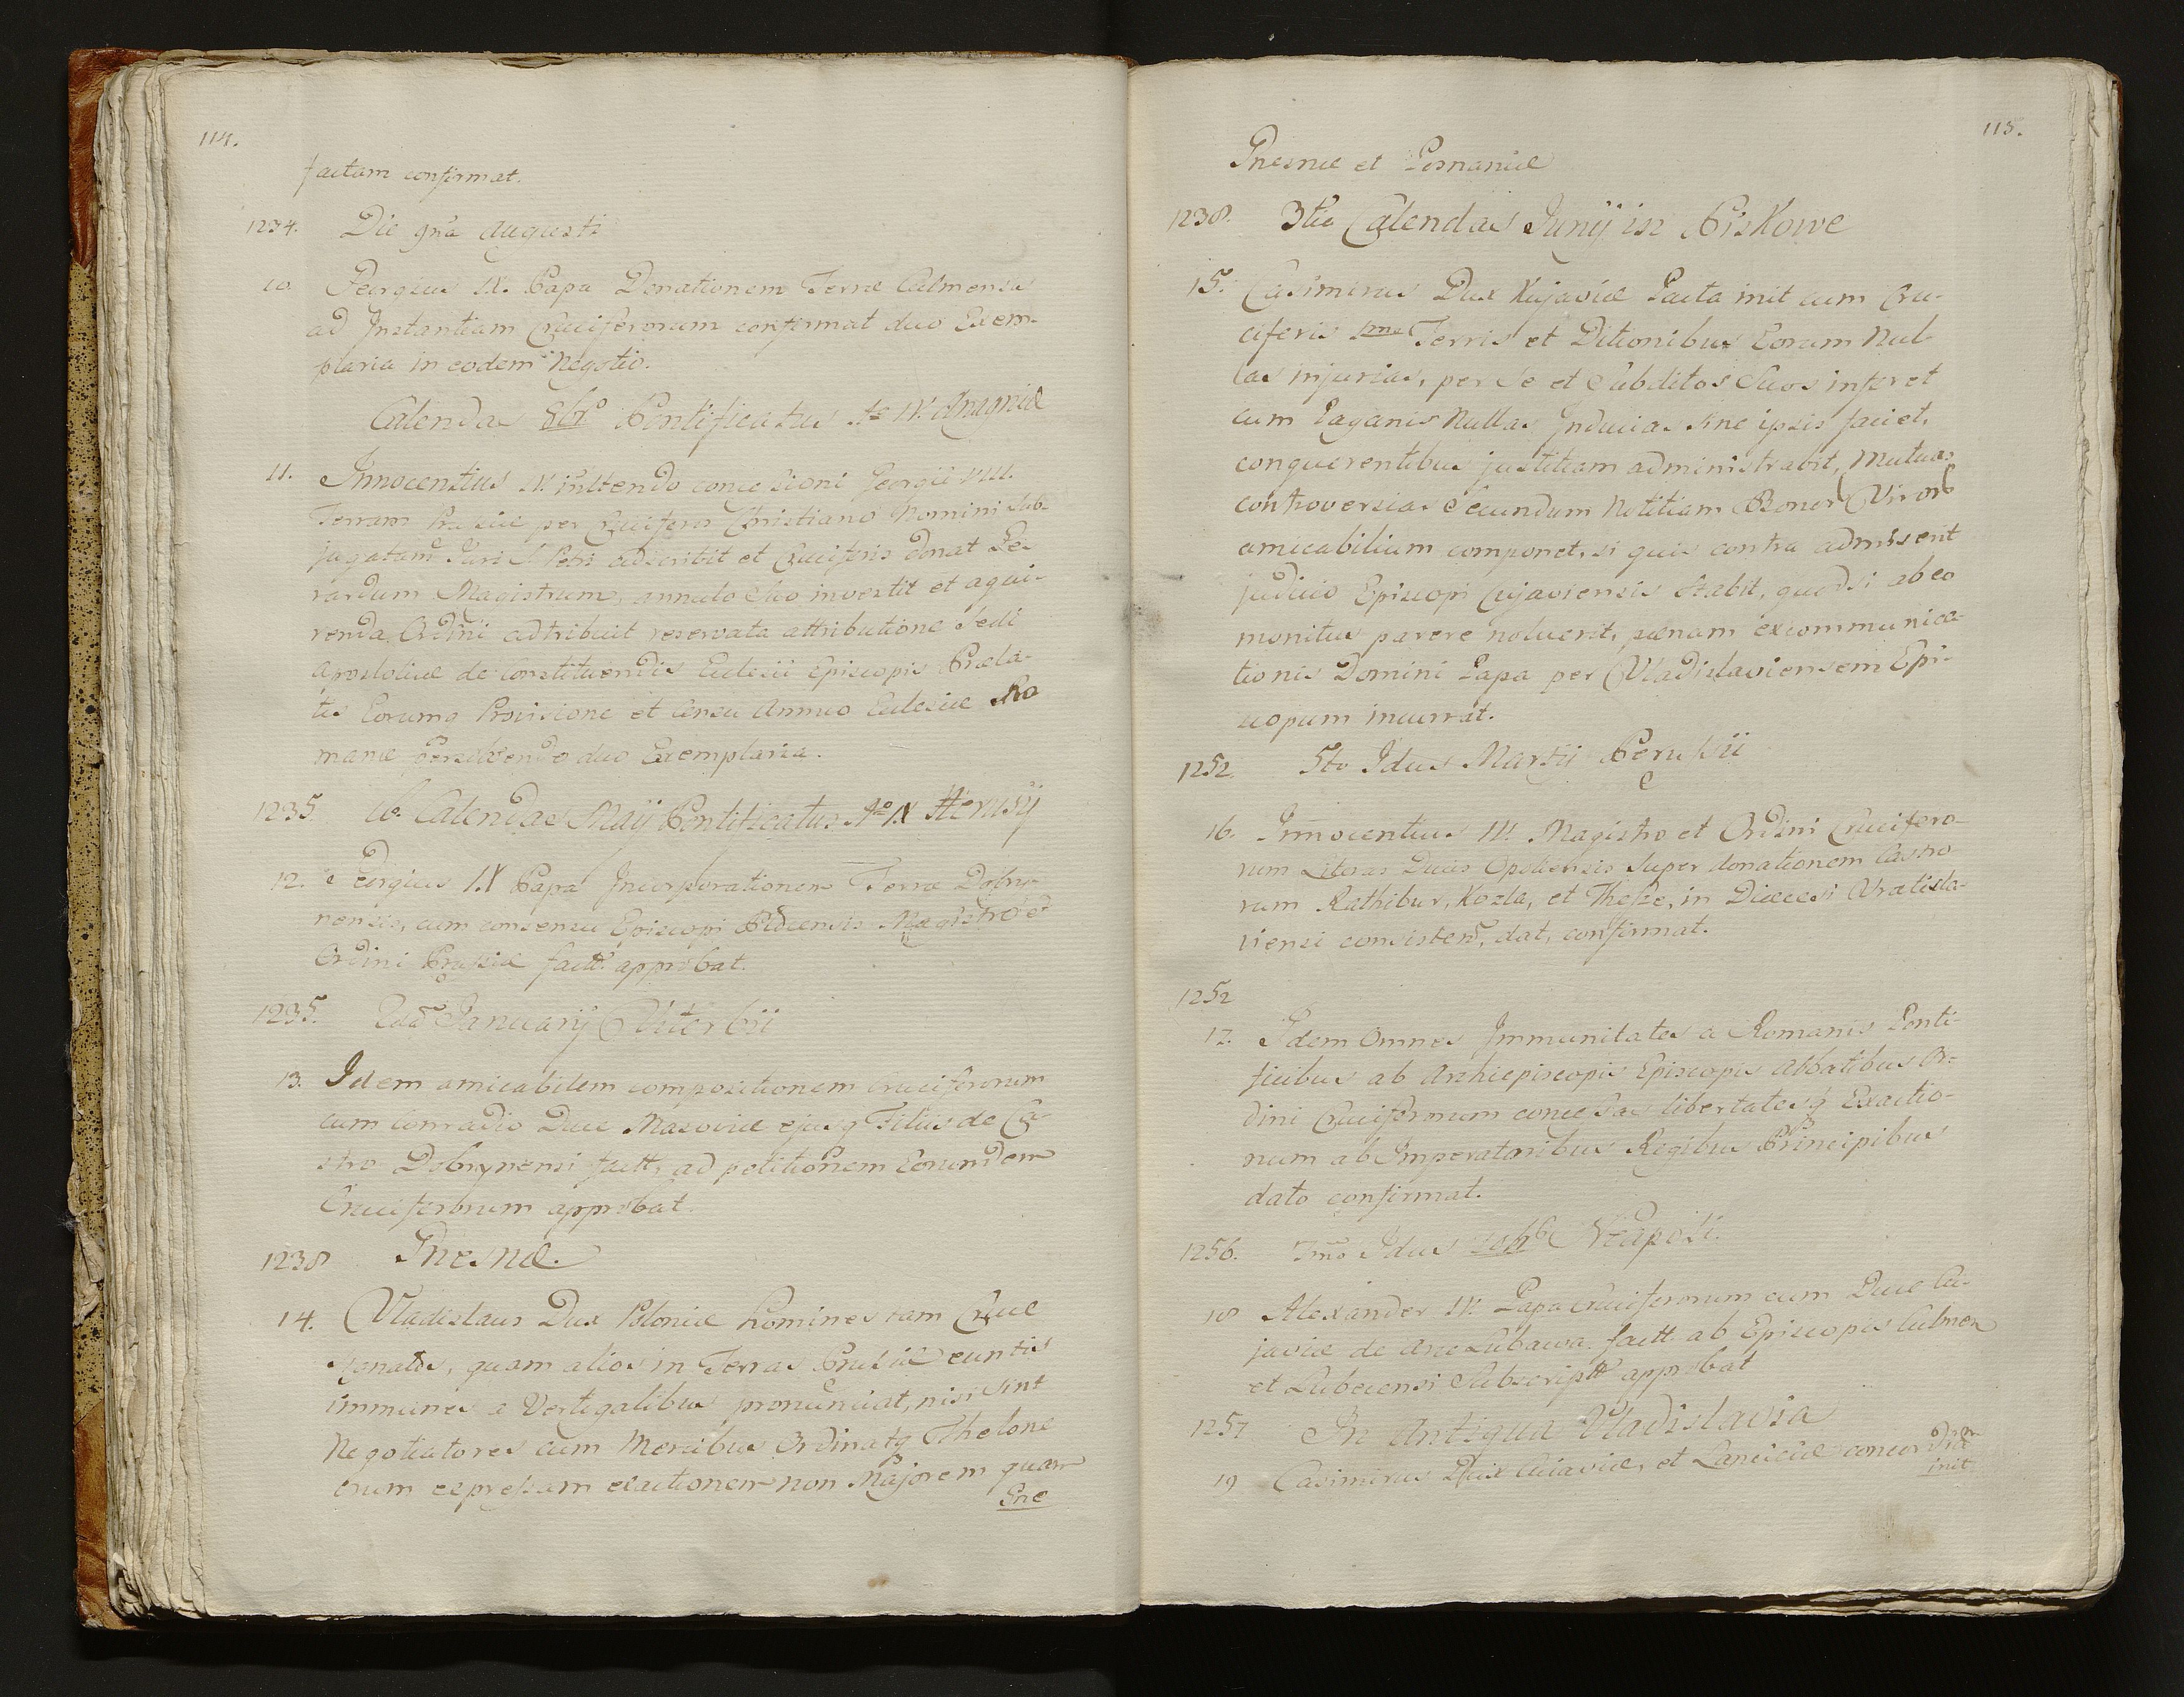 114.
factam confirmat.
1234. Die 9na Augusti
10. Georgius IX. Papa Donationem Terræ Culmensis
ad Instantiam Cruciferorum confirmat duo Exem-
plaria in eodem Negotio.
Calendas 8br° Pontificatus A° IV. Anagniæ
11. Innocentius IV. concessioni Georgii VIII.
Terram Prussiæ per Cruciferos Christiano Nomini Sub-
jugatam Juri S Petri adscribit et Cruciferis donat Ge-
rardum Magistrum, annulo Suo investit et aqui-
renda Ordini adtribuit reservata attributione Sedi
Apostolicæ de constituendis Eclesiis Episcopis Præla-
tis Eorumq Provisione et Censu Annuo Eclesiæ Ro
manæ Persolvendo duo Exemplaria.
1235 10. Calendas Maij Pontificatus A° IX
12. Georgius IX Papa Incorporationem Terræ Dobry-
nensis, cum consensu Episcopi Plocensis Magistro et
Ordini Prussiæ fact. approbat.
1235. Januarij Viterbii
13. Idem amicabilem compositionem Cruciferorum
cum Conradio Duce Masoviæ ejusq Filiis de Ca-
stro Dobrynensi fact, ad petitionem Eorundem
Cruciferorum approbat.
1238 Gnesnæ.
14. Vladislaus Dux Poloniæ homines tam Cruce
signatos, quam alios in Terras Prussiæ euntis
immunes a Vertigalibus pronunciat, nisi Sint
Negotiatores cum Mercibus Ordinatq Thelone
orum expressam exactionem non Majorem quam
Gne
115.
Gnesnæ et Posnaniæ
1238. 3tio Calendas Junij in Piskowe
15. Casimirus Dux Kujaviæ Pacta init cum Cru-
ciferis 1mo Terris et Ditionibus Eorum Nul-
las injurias, per Se et Subditos Suos inferet
cum Paganis Nullas Inducias sine ipsis faciet,
conquerentibus justitiam administrabit, Mutuas
controversias Secundum Notitiam Bonor Viror
amicabilium componet, si quis contra admiserit
judicio Episcopi Cujaviensis Stabit, quodsi ab eo
monitus parere noluerit, pænam excommunica-
tionis Domini Papa per Vladislaviensem Epi-
scopum incurrat.
1252 5to Idus Martij
16. Innocentius IV. Magistro et Ordini Crucifero-
rum Literas Ducis Opoliensis Super donationem Castro-
rum Rathibur, Kozla, et Thesze, in Diæcesi Vratisla-
viensi consisten, dat, confirmat.
1252
17. Idem Omnes Immunitates a Romanis Ponti-
ficibus ab Archiepiscopis Episcopis Abbatibus Or-
dini Cruciferorum concessas libertatesq Exactio-
num ab Imperatoribus Regibus Principibus
dato confirmat.
1256. 7mo Idus 10br Neapoli.
18 Alexander IV. Papa Cruciferorum cum Duce Cu-
javiæ de Arce Lubawa fact. ab Episcopis Culmen
et Lubecensi Subscript approbat
1257 In Antiqua Vladislavia
19 Casimirus Dux Cuiaviæ, et Lanciciæ concordiam
init